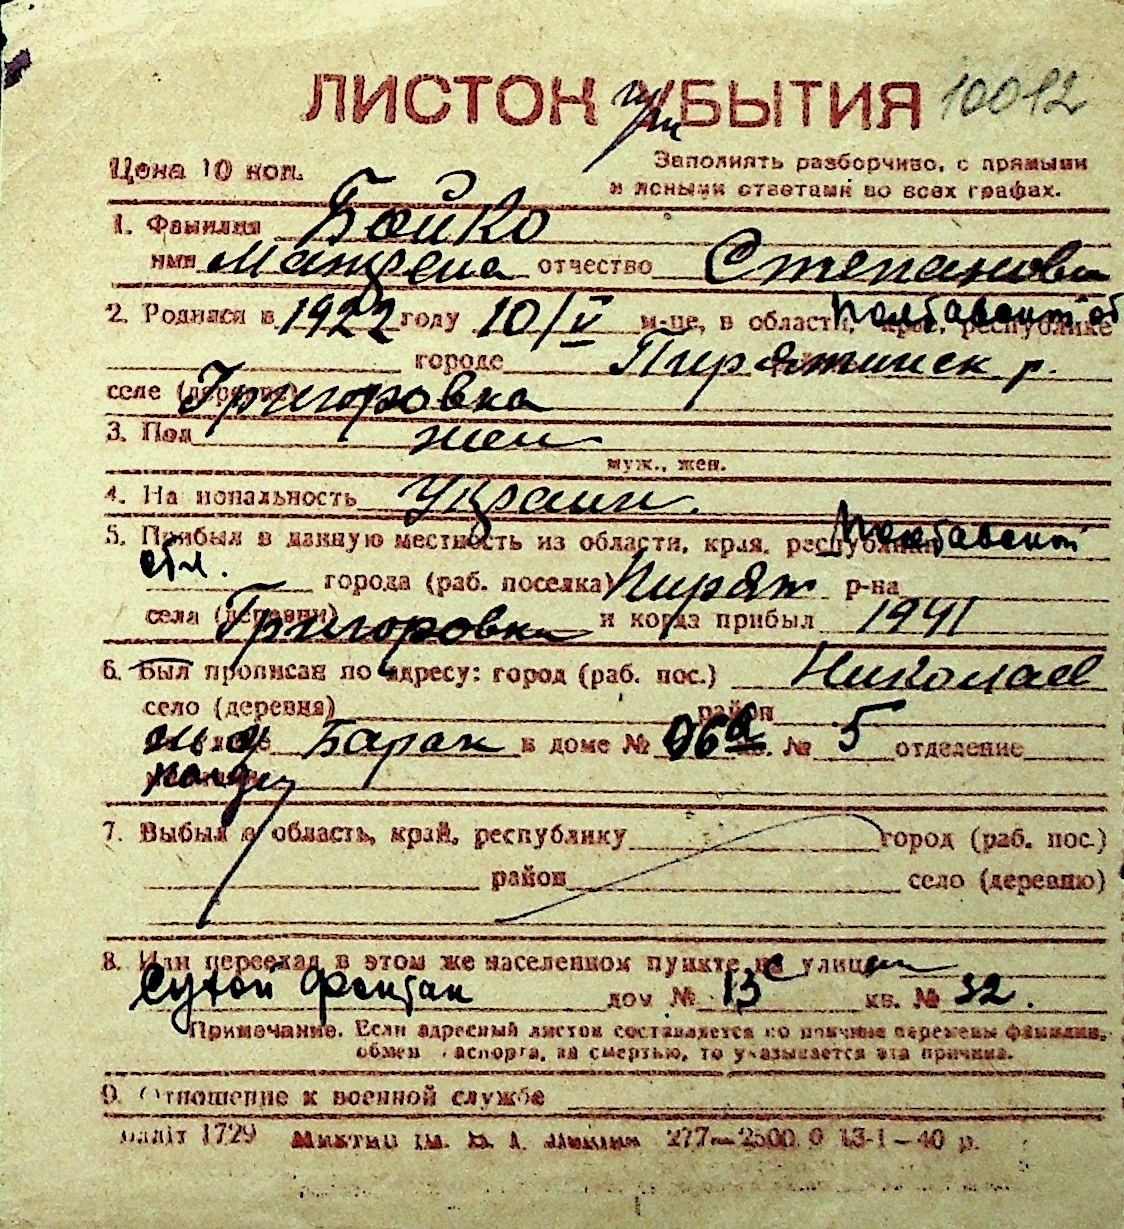 ЛИСТОК УБЫТИЯ при 10012
Цена 10 коп. Заполнять разборчиво, с прямыми
и ясными ответами во всех графах.
1. Фамилия Бойко
имя Матрена отчество Степанови
2. Родился в 1922 году 10/V м-це, в области, крае, республике Полтавской об
городе Пирятинск р.
селе (деревне) Григоровка
3. Пол жен
муж., жен.
4. Национальность Украин.
5. Прибыл в данную местность из области, края, республики Полтавской
обл. города (раб. поселка) Пирят р-на
села (деревни) Григоровки и когда прибыл 1941
6. Был прописан по адресу: город (раб. пос.) Николаев
село (деревня) район
Барак в доме № 06а кв. № 5 отделение
7. Выбыл в область, край, республику город (раб. пос.)
район село (деревню)
8. Или переехал в этом же населенном пункте на улицу с
Сухой Фонтан дом № 13 кв. № 32.
Примечание. Если адресный листок составляется по причине перемены фамилии,
обмен паспорта, за смертью, то указывается эта причина.
9. Отношение к военной службе
1729 277—2500 0 13-1—40 р.